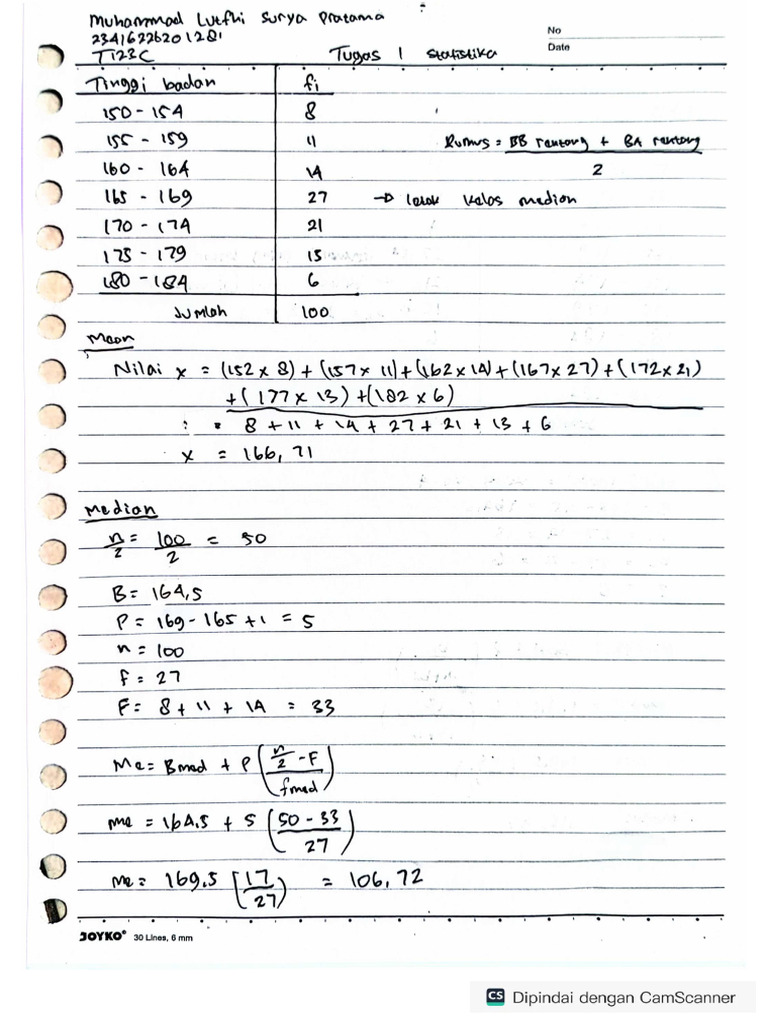 Muhammad Lutfhi Surya Pratama
23416226201281
TI23C
Tugas 1 Statistika
No
Date
Tinggi badan fi
150 - 154 8
155 - 159 11
Rumus = BB rentang + BA rentang
2
160 - 164 14
165 - 169 27 → letak kelas median
170 - 174 21
175 - 179 13
180 - 184 6
Jumlah 100
Mean
Nilai x = (152 x 8) + (157 x 11) + (162 x 14) + (167 x 27) + (172 x 21)
+ (177 x 13) + (182 x 6)
: = 8 + 11 + 14 + 27 + 21 + 13 + 6
x = 166,71
Median
n/2 = 100/2 = 50
B = 164,5
P = 169 - 165 + 1 = 5
n = 100
f = 27
F = 8 + 11 + 14 = 33
Me = Bmed + P (n/2 - F / fmed)
me = 164.5 + 5 (50 - 33 / 27)
me = 169.5 [17 / 27) = 106,72
JOYKO® 30 Lines, 6 mm
CS Dipindai dengan CamScanner